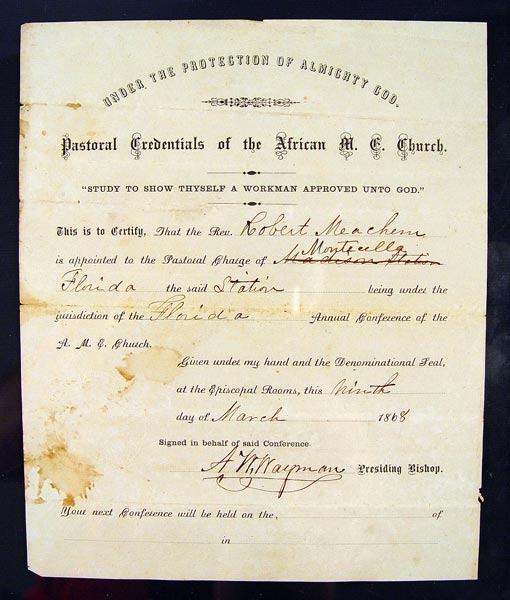 UNDER THE PROTECTION OF ALMIGHTY GOD.
Pastoral Credentials of the African M. E. Church.
"STUDY TO SHOW THYSELF A WORKMAN APPROVED UNTO GOD."
This is to Certify, That the Rev. Robert Meachem
Monticello
is appointed to the Pastoral Charge of Madison Station
Florida the said Station being under the
jurisdiction of the Florida Annual Conference of the
A. M. E. Church.
Given under my hand and the Denominational Seal,
at the Episcopal Rooms, this ninth
day of March 1868
Signed in behalf of said Conference.
A W Wayman Presiding Bishop.
Your next Conference will be held on the, of
in